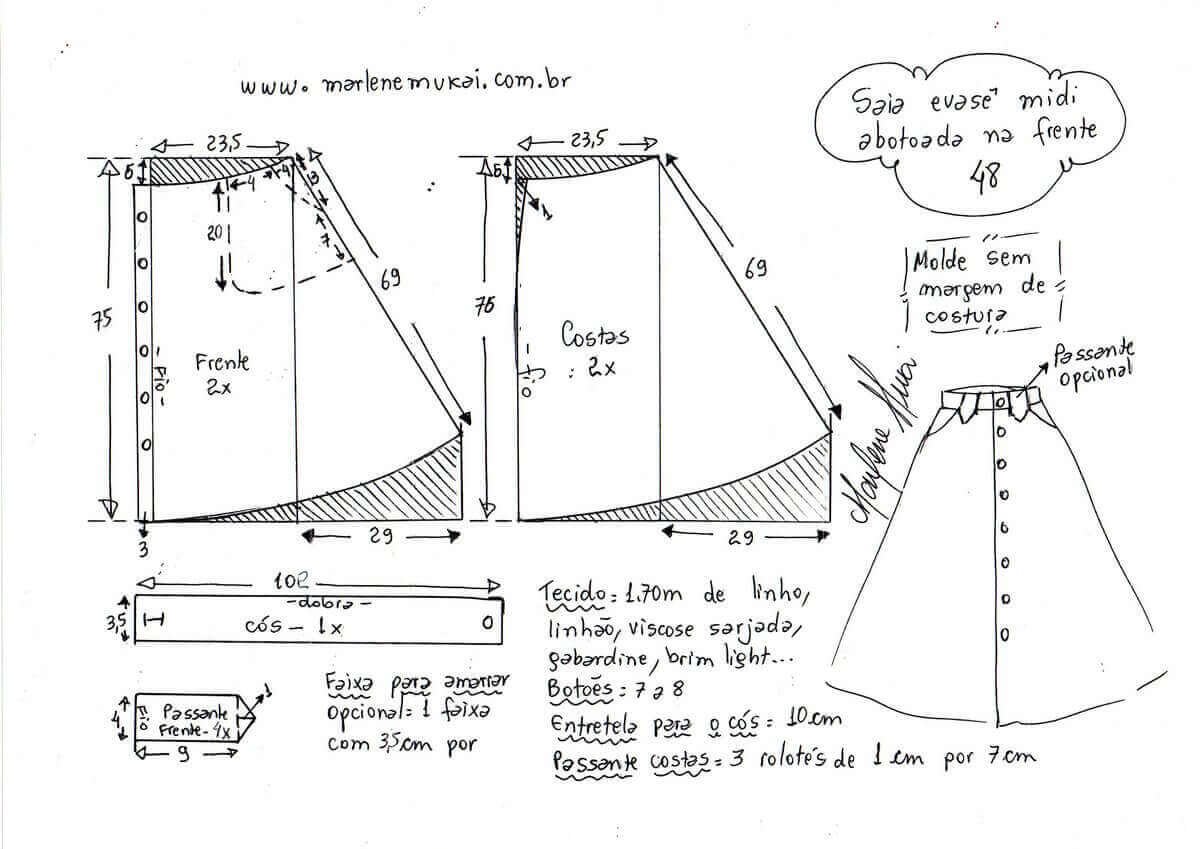 www.marlenemukai.com.br
Saia evasê midi
abotoada na frente
48
Molde sem
margem de
costura
23,5
5
4
4
3
20
7
69
75
Frente
2x
Fio
3
29
23,5
5
1
69
76
Costas
2x
Fio
29
Marlene Mukai
Passante
opcional
102
3,5
-dobra-
cós - 1x
4
Fio
Passante
Frente-4x
1
9
Faixa para amarrar
Opcional= 1 faixa
com 3,5cm por
Tecido= 1.70m de linho,
linhão, viscose sarjada,
gabardine, brim light...
Botões= 7 a 8
Entretela para o cós= 10cm
Passante costas= 3 rolotés de 1cm por 7cm